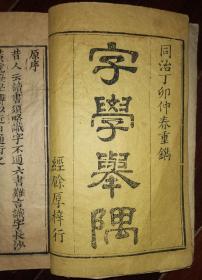 同治丁卯仲春重鐫
字學舉隅
經餘厚梓行
原序
昔人云讀書須略識字不通六書難言識字長沙